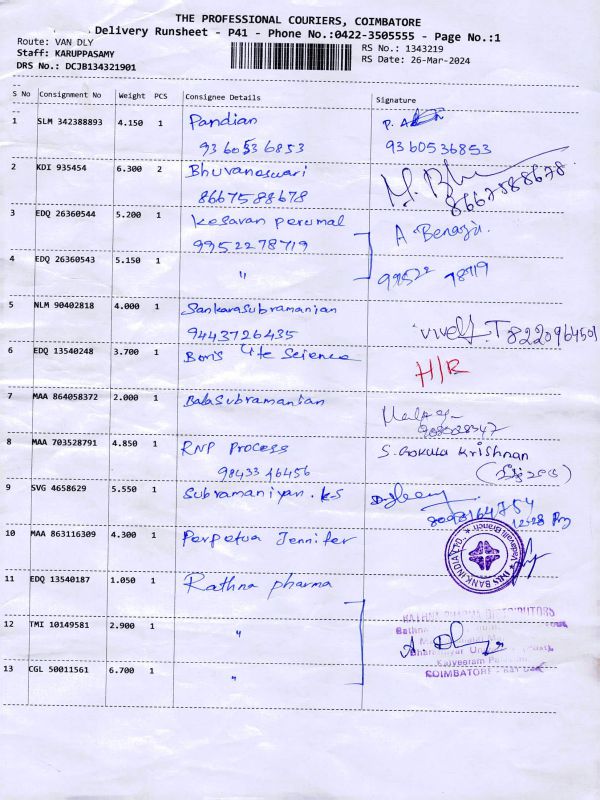 THE PROFESSIONAL COURIERS, COIMBATORE
Delivery Runsheet - P41 - Phone No.:0422-3505555 - Page No.:1
Route: VAN DLY
Staff: KARUPPASAMY
DRS No.: DCJB134321901
RS No.: 1343219
RS Date: 26-Mar-2024
S No Consignment No Weight PCS Consignee Details Signature
1 SLM 342388893 4.150 1 Pandian P.
9360536853 9360536853
2 KDI 935454 6.300 2 Bhuvaneswari
8667588678 8667588678
3 EDQ 26360544 5.200 1 Kesavan perumal
9952278719 A.
4 EDQ 26360543 5.150 1 " 99522 78719
5 NLM 90402818 4.000 1 Sankarasubramanian
9443726435 8220964501
6 EDQ 13540248 3.700 1 Life Science H/R
7 MAA 864058372 2.000 1 Balasubramanian
8 MAA 703528791 4.850 1 RNP Process S. Gokula Krishnan
98433 46456
9 SVG 4658629 5.550 1 Subramaniyan.k.s
12:28
10 MAA 863116309 4.300 1 Perpetua Jennifer
BANK INDIA LTD.
11 EDQ 13540187 1.050 1 Rathna pharma
RATHNA PHARMA DISTRIBUTORS
12 TMI 10149581 2.900 1 "
13 CGL 50011561 6.700 1 "
COIMBATORE